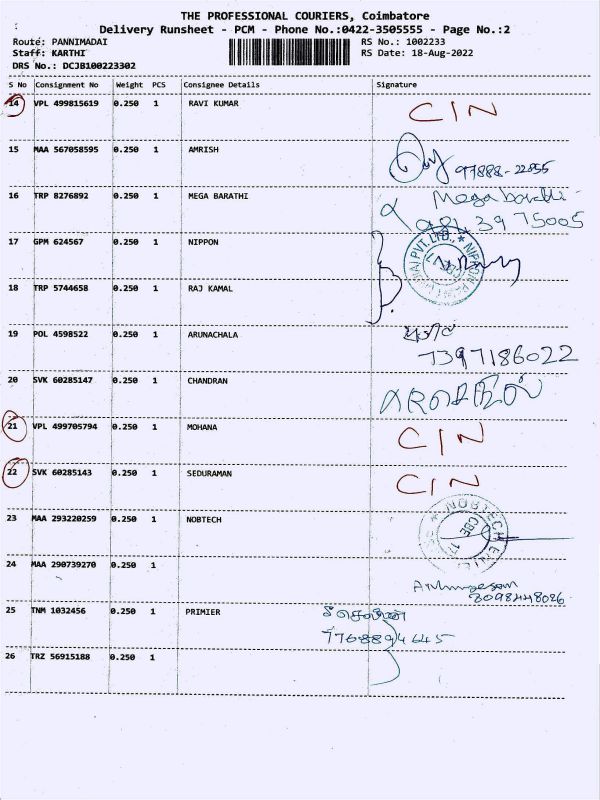 THE PROFESSIONAL COURIERS, Coimbatore
Delivery Runsheet - PCM - Phone No.:0422-3505555 - Page No.:2
Route: PANNIMADAI
RS No.: 1002233
Staff: KARTHI
RS Date: 18-Aug-2022
DRS No.: DCJB100223302
S No Consignment No Weight PCS Consignee Details Signature
14 VPL 499815619 0.250 1 RAVI KUMAR CIN
15 MAA 567058595 0.250 1 AMRISH
97888-22855
16 TRP 8276892 0.250 1 MEGA BARATHI Mega barathi
98139 75005
17 GPM 624567 0.250 1 NIPPON
18 TRP 5744658 0.250 1 RAJ KAMAL
19 POL 4598522 0.250 1 ARUNACHALA
7397186022
20 SVK 60285147 0.250 1 CHANDRAN
21 VPL 499705794 0.250 1 MOHANA CIN
22 SVK 60285143 0.250 1 SEDURAMAN CIN
23 MAA 293220259 0.250 1 NOBTECH NOBTECH
24 MAA 290739270 0.250 1
25 TNM 1032456 0.250 1 PRIMIER
7768894645
26 TRZ 56915188 0.250 1